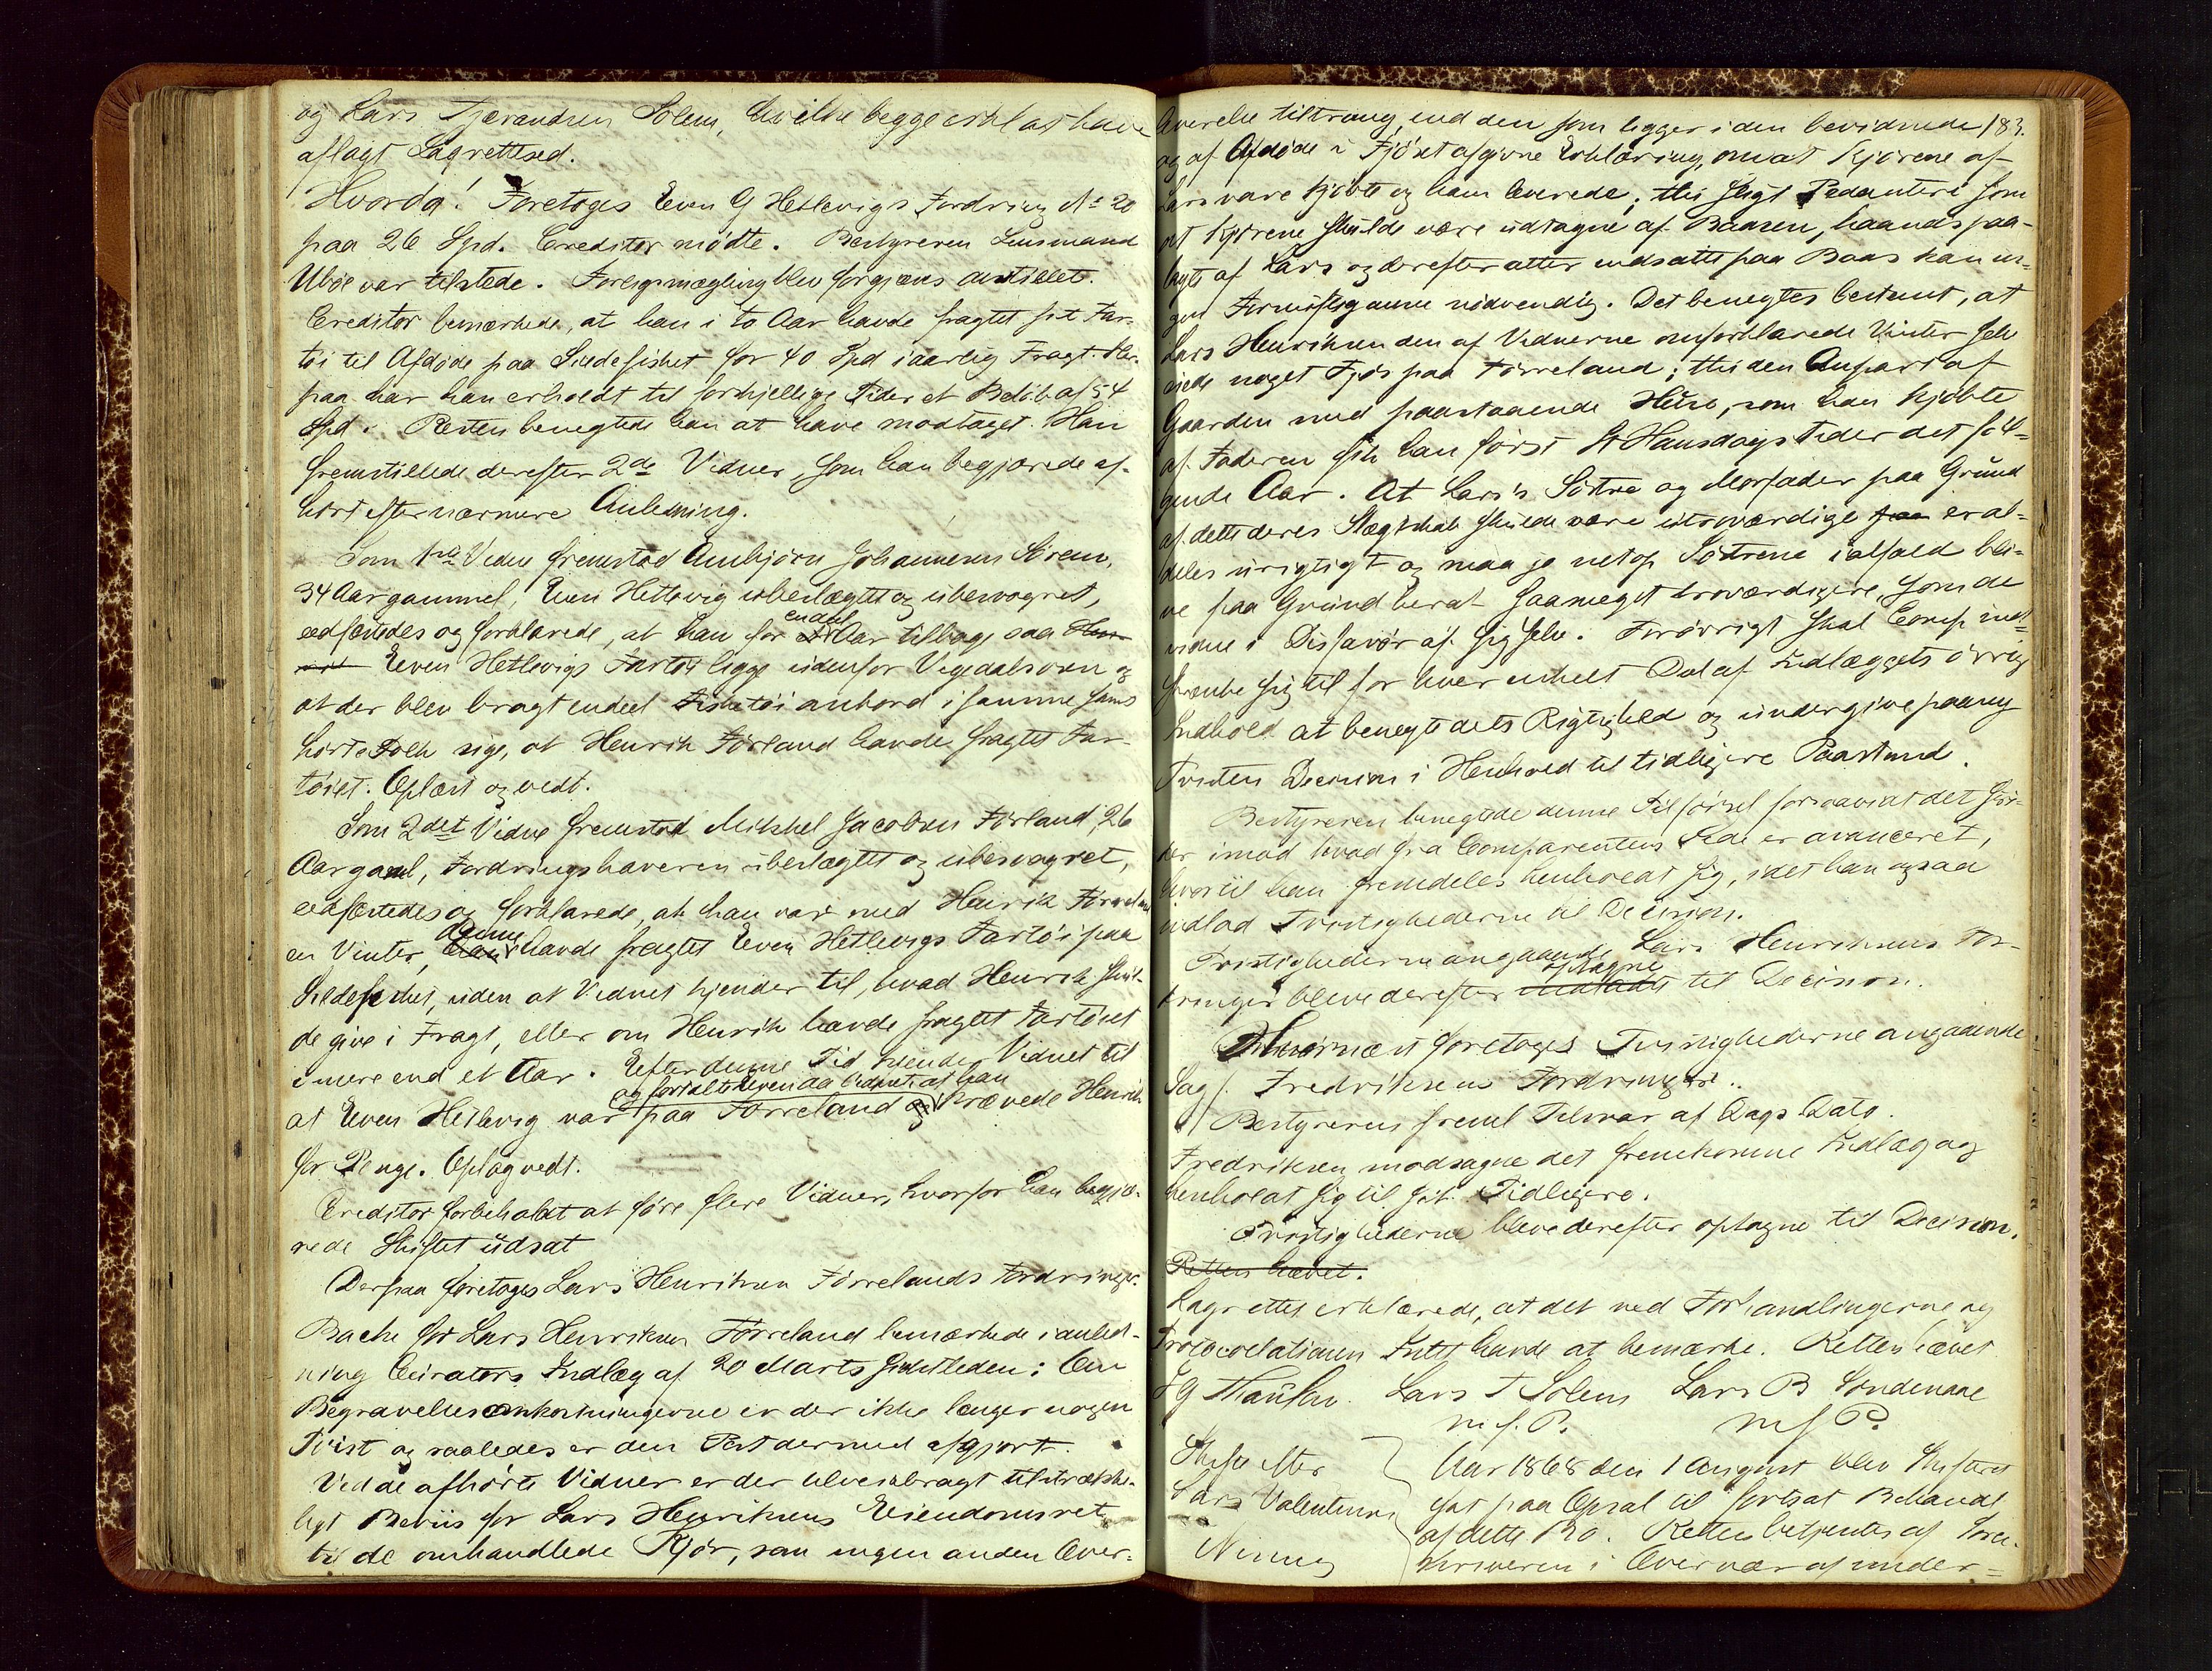 og Lars Tjerandsen Solem, hvilke begge erklært have
aflagt Lagrettesed.
Hvorda! Foretoges Even G Hetlevigs Fordring No 20
paa 26 Spd. Creditor mødte. Bestyreren Lensmand
Ubøe var tilstede. Forligsmægling blev forgjæves anstillet.
Creditor bemærkede, at han i to Aar havde fragtet sit Far-
tøi til Afdøde paa Sildefisket for 40 Spd i aarlig Fragt. Her-
paa har han erholdt til forskjellige Tider et Beløb af 54
Spd. Resten benegtede han at have modtaget. Han
fremstillede derefter 2de Vidner, som han begjærede af-
hørt efter nærmere Anledning.
Som 1ste Vidne fremstod Ambjørn Johannesen
34 Aar gammel, Even Hetlevig ubeslægtet og ubesvogret,
edfæstedes og forklarede, at han for endel Aar tilbage saa
Even Hetlevigs Fartøi ligge udenfor og
at der blev bragt endeel Fisketøi ombord i samme samt
hørte Folk sige, at Henrik Førland havde fragtet Far-
tøiet. Oplæst og vedt.
Som 2det Vidne fremstod Mikkel Jacobsen Førland, 26
Aar gaml, Fordringshaveren ubeslægtet og ubesvogret,
edfæstedes og forklarede, at han var med Henrik Førreland
en Vinter, denne havde fragtet Even Hetlevigs Fartøi paa
Sildefisket, uden at Vidnet kjender til, hvad Henrik skul-
de give i Fragt, eller om Henrik havde fragtet Fartøiet
i mere end et Aar. Efter denne Tid kjender Vidnet til
og fortalte Even da Vidnet, at han
at Even Hetlevig var paa Førreland og krævede Henrik
for Penge. Opl og vedt.
Creditor forbeholdt at føre flere Vidner, hvorfor han begjæ-
rede Skiftet udsat
Derpaa foretoges Lars Henriksen Førrelands Fordringer.
Bache for Lars Henriksen Førreland bemærkede i anled-
ning Curators Indlæg af 20 Marts sidstleden: Om
Begravelsesomkostningerne er der ikke længer nogen
Tvist og saaledes er den Post dermed afgjort.
Ved de afhørte Vidner er der tilveiebragt tilstrække-
ligt Beviis for Lars Henriksens Eiendomsret
til de omhandlede Kjør, som ingen anden Over-
leverelse tiltrang, end den som ligger i den bevidnede 183.
og af Afdøde i Fjøset afgivne Erklæring, om at Kjørene af
Lars vare kjøbte og ham leverede; thi sligt Pedanteri som
at Kjørene skulde være udtagne af Baasen, haandspaa-
lagte af Lars og derefter atter indsatte paa Baas kan in-
gen Fornuftig ansee nødvendig. Det benegtes bestemt, at
Lars Henriksen den af Vidnerne omforklarede Vinter selv
eiede noget Fjøs paa Førreland; thi den Anpart af
Gaarden med paastaaende Huse, som han kjøbte
af Faderen fik han først St Hansdags Tider det føl-
gende Aar. At Lars's Søstre og Morfader paa Grund
af dette deres Slægtskab skulde være utroværdige er al-
deles urigtigt og maa jo netop Søstrene ialfald bli-
ve paa Grund heraf saameget troværdigere, som de
vidne i Disfavør af sig selv. Forøvrigt skal Comp ind-
skrænke sig til for hver enkelt Deel af Indlæggets øvrige
Indhold at benegte dets Rigtighed og undergive paany
Tvisten Decision i Henhold til tidligere Paastand.
Bestyreren benegtede denne Tilførsel forsaavidt det stri-
der imod hvad fra Comparentens Side er avanceret,
hvortil han fremdeles henholdt sig, idet han ogsaa
indlod Tvistighederne til Decision.
Tvistighederne angaaende Lars Henriksens For-
dringer bleve derefter optagne til Decision.
Hvornæst foretoges Tvistighederne angaaende
Sagf. Fredriksens Fordringer.
Bestyreren freml Tilsvar af Dags Dato.
Fredriksen modsagde det fremkomne Indlæg og
henholdt sig til sit Tidligere.
Tvistighederne bleve derefter optagne til Decision.
Retten hævet.
Lagrettet erklærede, at det ved Forhandlingerne og
Protocollationen Intet havde at bemærke. Retten hævet
Lars T Solem Lars B Søndenaae
m. f. P. m f P.
Skifte efter
Lars Valentinus
Ninney
Aar 1868 den 1 August blev Skifteret
sat paa Opsal til fortsat Behandl
af dette Bo. Retten betjentes af Soren-
skriveren i Overvær af under-